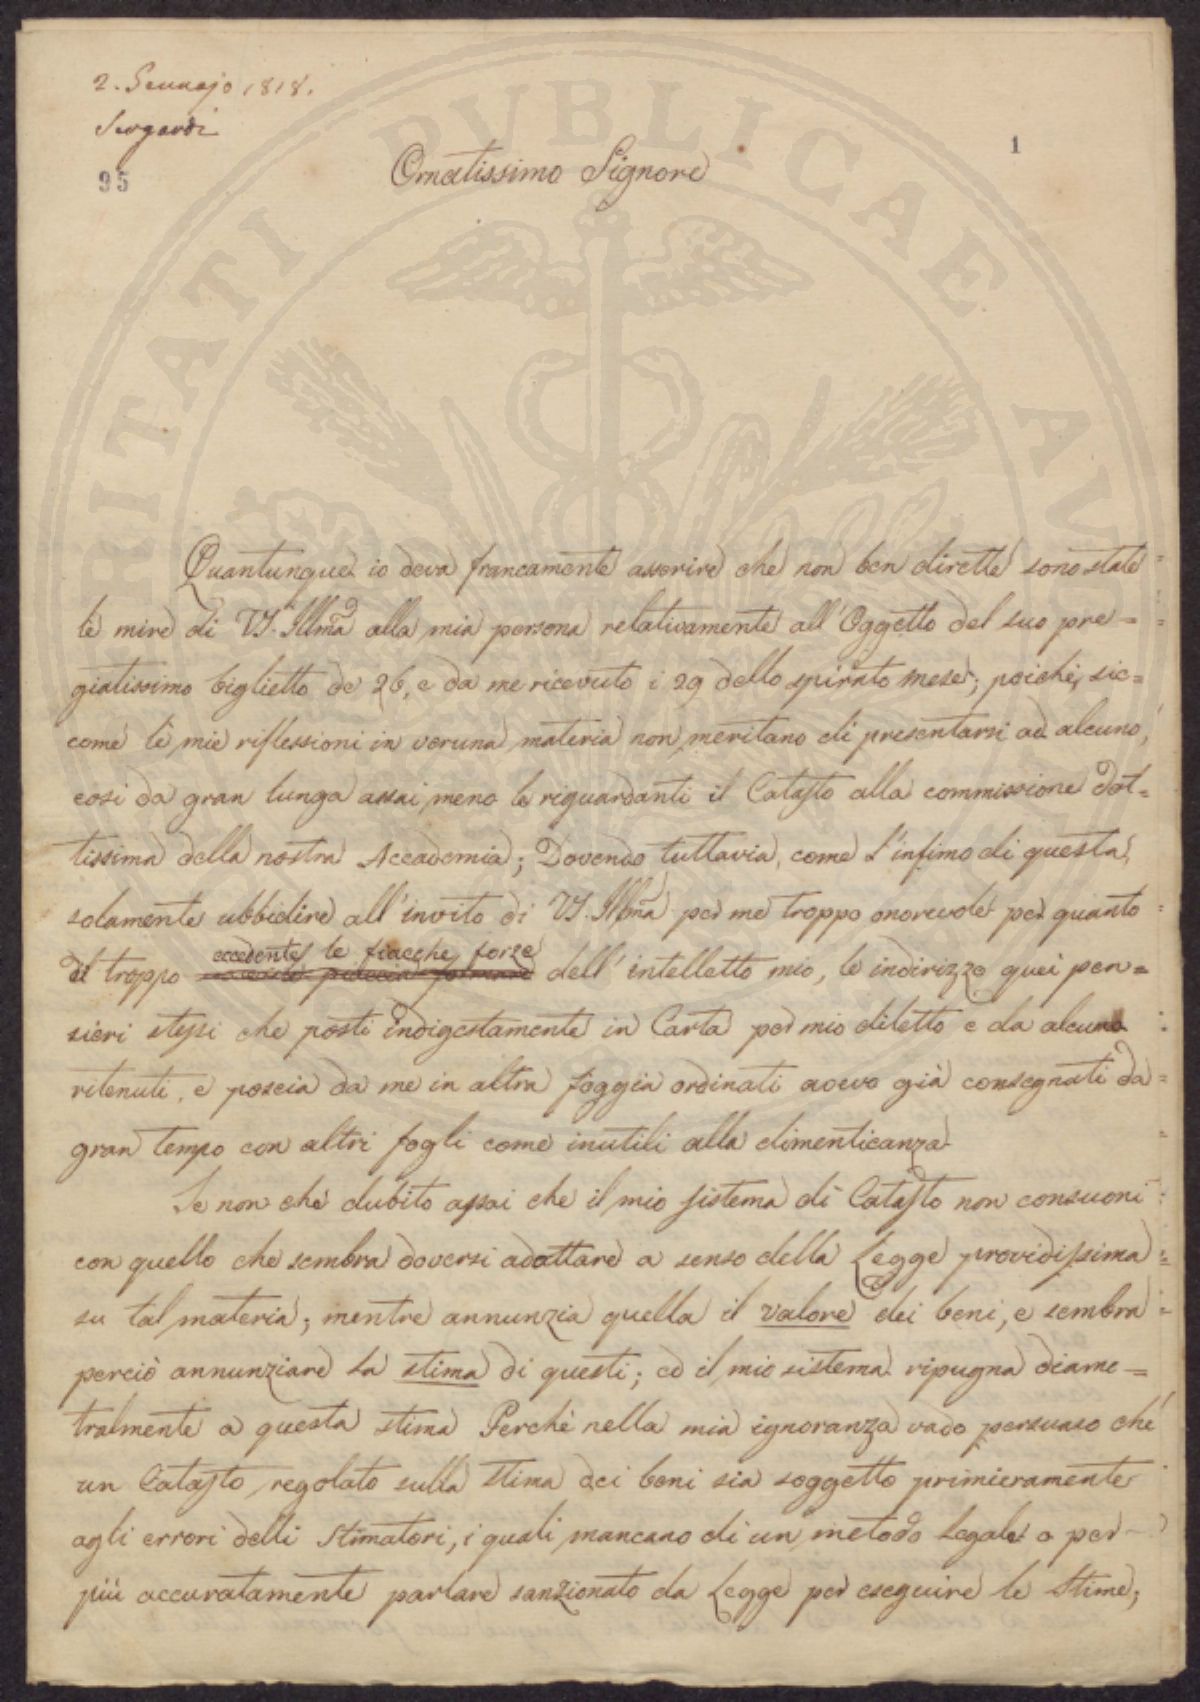 2. Gennajo 1818.
Sergardi
95
1
Ornatissimo Signore
Quantunque io deva francamente asserire che non ben dirette sono state
le mire di VS. Illma alla mia persona relativamente all'Oggetto del suo pre=
giatissimo biglietto de 26, e da me ricevuto i 29 dello spirato mese; poichè, sic=
come le mie riflessioni in veruna materia non meritano di presentarsi ad alcuno,
così da gran lunga assai meno le riguardanti il Catasto alla commissione dot=
tissima della nostra Accademia; Dovendo tuttavia, come l'infimo di questa,
solamente ubbidire all'invito di VS. Illma per me troppo onorevole per quanto
troppo eccedente le fiacche forze dell'intelletto mio, le indirizzo quei pen=
sieri stessi che posti indigestamente in Carta per mio diletto e da alcuno
ritenuti, e poscia da me in altra foggia ordinati avevo già consegnati da
gran tempo con altri fogli come inutili alla dimenticanza
Se non che dubito assai che il mio sistema di Catasto non consuoni
con quello che sembra doversi adattare a senso della Legge providissima
su tal materia; mentre annunzia quella il valore dei beni, e sembra
perciò annunziare la stima di questi; ed il mio sistema ripugna diame=
tralmente a questa stima Perchè nella mia ignoranza vado persuaso che
un Catasto regolato sulla stima dei beni sia soggetto primieramente
agli errori delli Stimatori, i quali mancano di un metodo Legale o per
più accuratamente parlare sanzionato da Legge per eseguire le Stime;
PUBLICAE